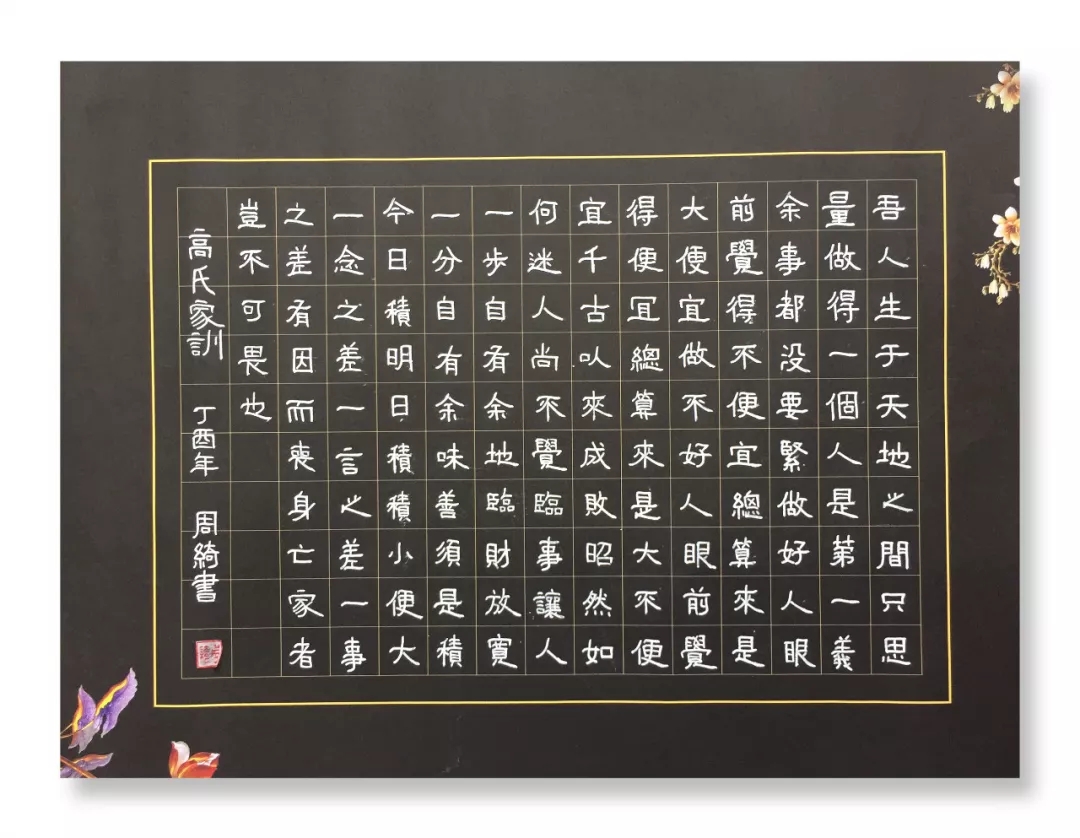 吾人生于天地之間只思
量做得一個人是第一義
余事都没要緊做好人眼
前覺得不便宜總算來是
大便宜做不好人眼前覺
得便冝總算來是大不便
宜千古以來成敗昭然如
何迷人尚不覺臨事讓人
一步自有余地臨財放寬
一分自有余味善須是積
今日積明日積積小便大
一念之差一言之差一事
之差有因而喪身亡家者
豈不可畏也
高氏家訓 丁酉年 周綺書